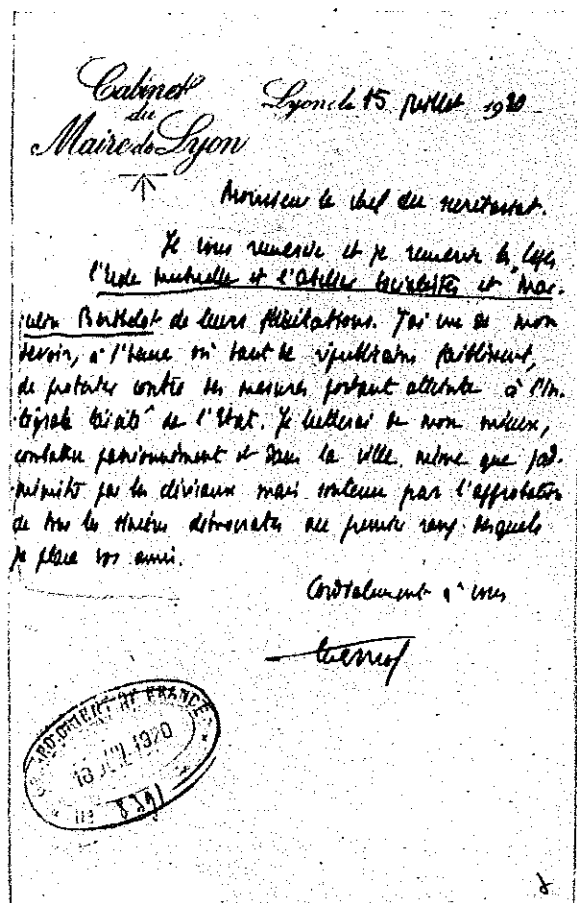 Cabinet
du
Maire de Lyon
Lyon, le 15 juillet 1920
Monsieur le chef du secrétariat.
Je vous remercie et je remercie les Loges
l'Aide mutuelle et l'Atelier Socialiste et Mar-
celin Berthelot de leurs félicitations. J'ai cru de mon
devoir, à l'heure où tant de républicains faiblissent,
de protester contre des mesures portant atteinte à l'in-
tégrale laïcité de l'Etat. Je lutterai de mon mieux,
combattu passionnément et dans la ville même que j'ad-
ministre par les cléricaux mais soutenu par l'approbation
de tous les sincères démocrates au premier rang desquels
je place vos amis.
Cordialement à vous
Herriot
GR ORIENT DE FRANCE
18 JUIL 1920
8391